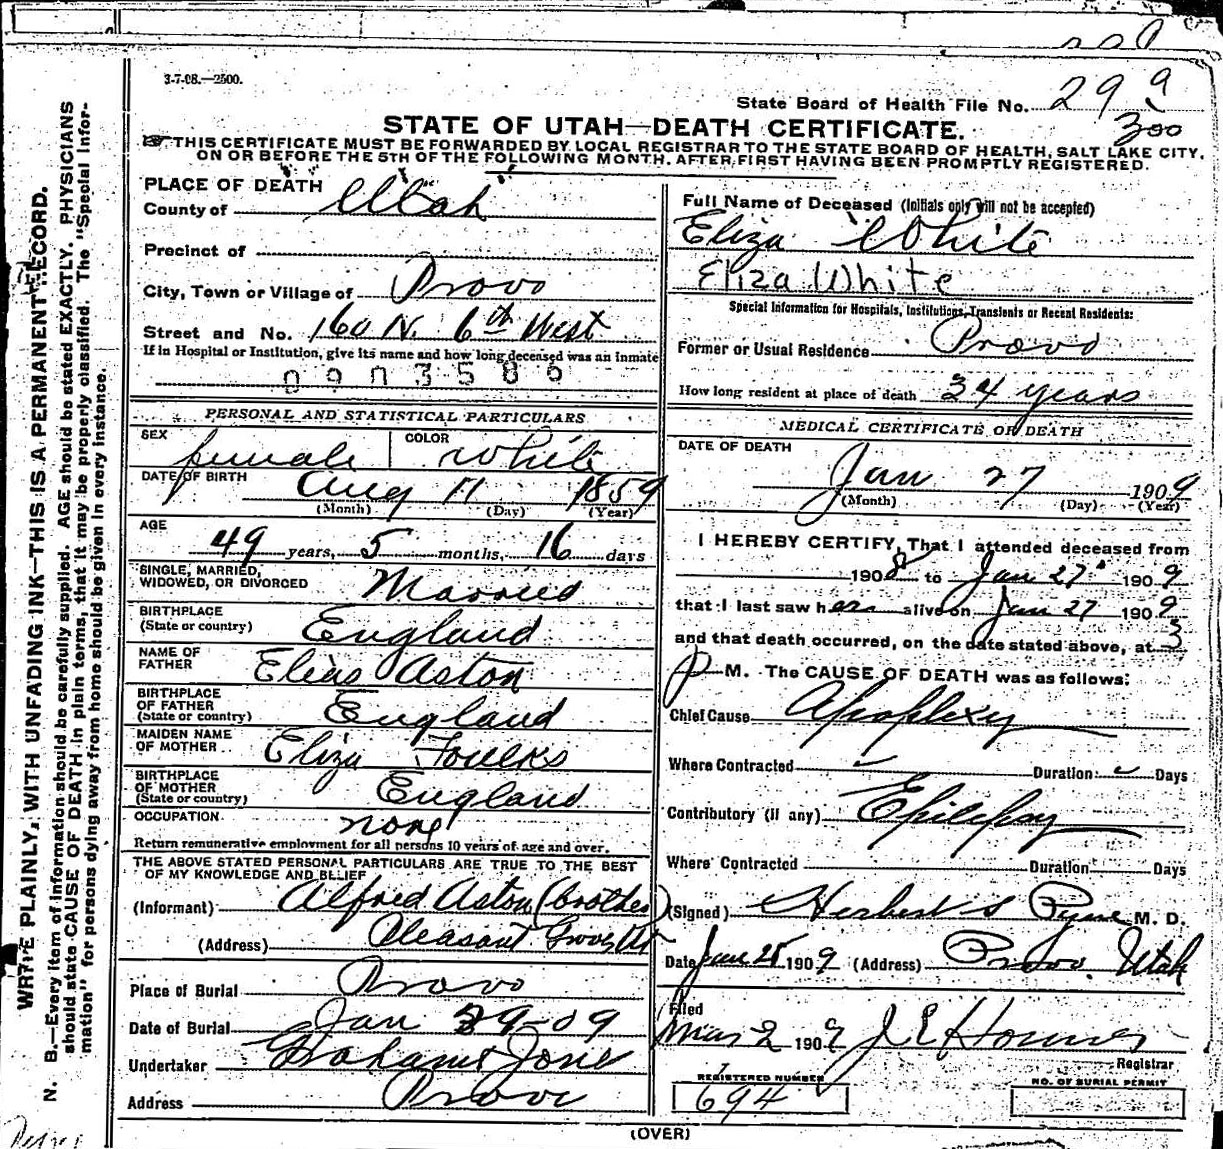 3-7-08.—2500.
State Board of Health File No. 299
300
STATE OF UTAH—DEATH CERTIFICATE.
THIS CERTIFICATE MUST BE FORWARDED BY LOCAL REGISTRAR TO THE STATE BOARD OF HEALTH, SALT LAKE CITY,
ON OR BEFORE THE 5TH OF THE FOLLOWING MONTH, AFTER FIRST HAVING BEEN PROMPTLY REGISTERED.
WRITE PLAINLY, WITH UNFADING INK—THIS IS A PERMANENT RECORD.
N. B.—Every item of information should be carefully supplied. AGE should be stated EXACTLY. PHYSICIANS
should state CAUSE OF DEATH in plain terms, that it may be properly classified. The "Special Infor-
mation" for persons dying away from home should be given in every instance.
PLACE OF DEATH
County of Utah
Precinct of
City, Town or Village of Provo
Street and No. 160 N. 6th West
If in Hospital or Institution, give its name and how long deceased was an inmate
0903586
PERSONAL AND STATISTICAL PARTICULARS
SEX female COLOR White
DATE OF BIRTH Aug 11 1859
(Month) (Day) (Year)
AGE 49 years, 5 months, 16 days
SINGLE, MARRIED,
WIDOWED, OR DIVORCED Married
BIRTHPLACE
(State or country) England
NAME OF
FATHER Elias Aston
BIRTHPLACE
OF FATHER
(State or country) England
MAIDEN NAME
OF MOTHER Eliza Foulks
BIRTHPLACE
OF MOTHER
(State or country) England
OCCUPATION none
Return remunerative employment for all persons 10 years of age and over.
THE ABOVE STATED PERSONAL PARTICULARS ARE TRUE TO THE BEST
OF MY KNOWLEDGE AND BELIEF
(Informant) Alfred Aston (brother)
(Address) Pleasant Grove, Ut
Place of Burial Provo
Date of Burial Jan 29-09
Undertaker Graham & Jones
Address Provo
Full Name of Deceased (Initials only will not be accepted)
Eliza White
Eliza White
Special Information for Hospitals, Institutions, Transients or Recent Residents:
Former or Usual Residence Provo
How long resident at place of death 34 years
MEDICAL CERTIFICATE OF DEATH
DATE OF DEATH
Jan 27 1909
(Month) (Day) (Year)
I HEREBY CERTIFY, That I attended deceased from
1908 to Jan 27 1909
that I last saw her alive on Jan 27 1909
and that death occurred, on the date stated above, at 3
P M. The CAUSE OF DEATH was as follows:
Chief Cause Apoplexy
Where Contracted Duration Days
Contributory (if any) Epilepsy
Where Contracted Duration Days
(Signed) Herbert S Pyne M. D.
Date Jan 28 1909 (Address) Provo, Utah
Filed
Mar 2 1909 J E
Registrar
REGISTERED NUMBER
694
NO. OF BURIAL PERMIT
(OVER)